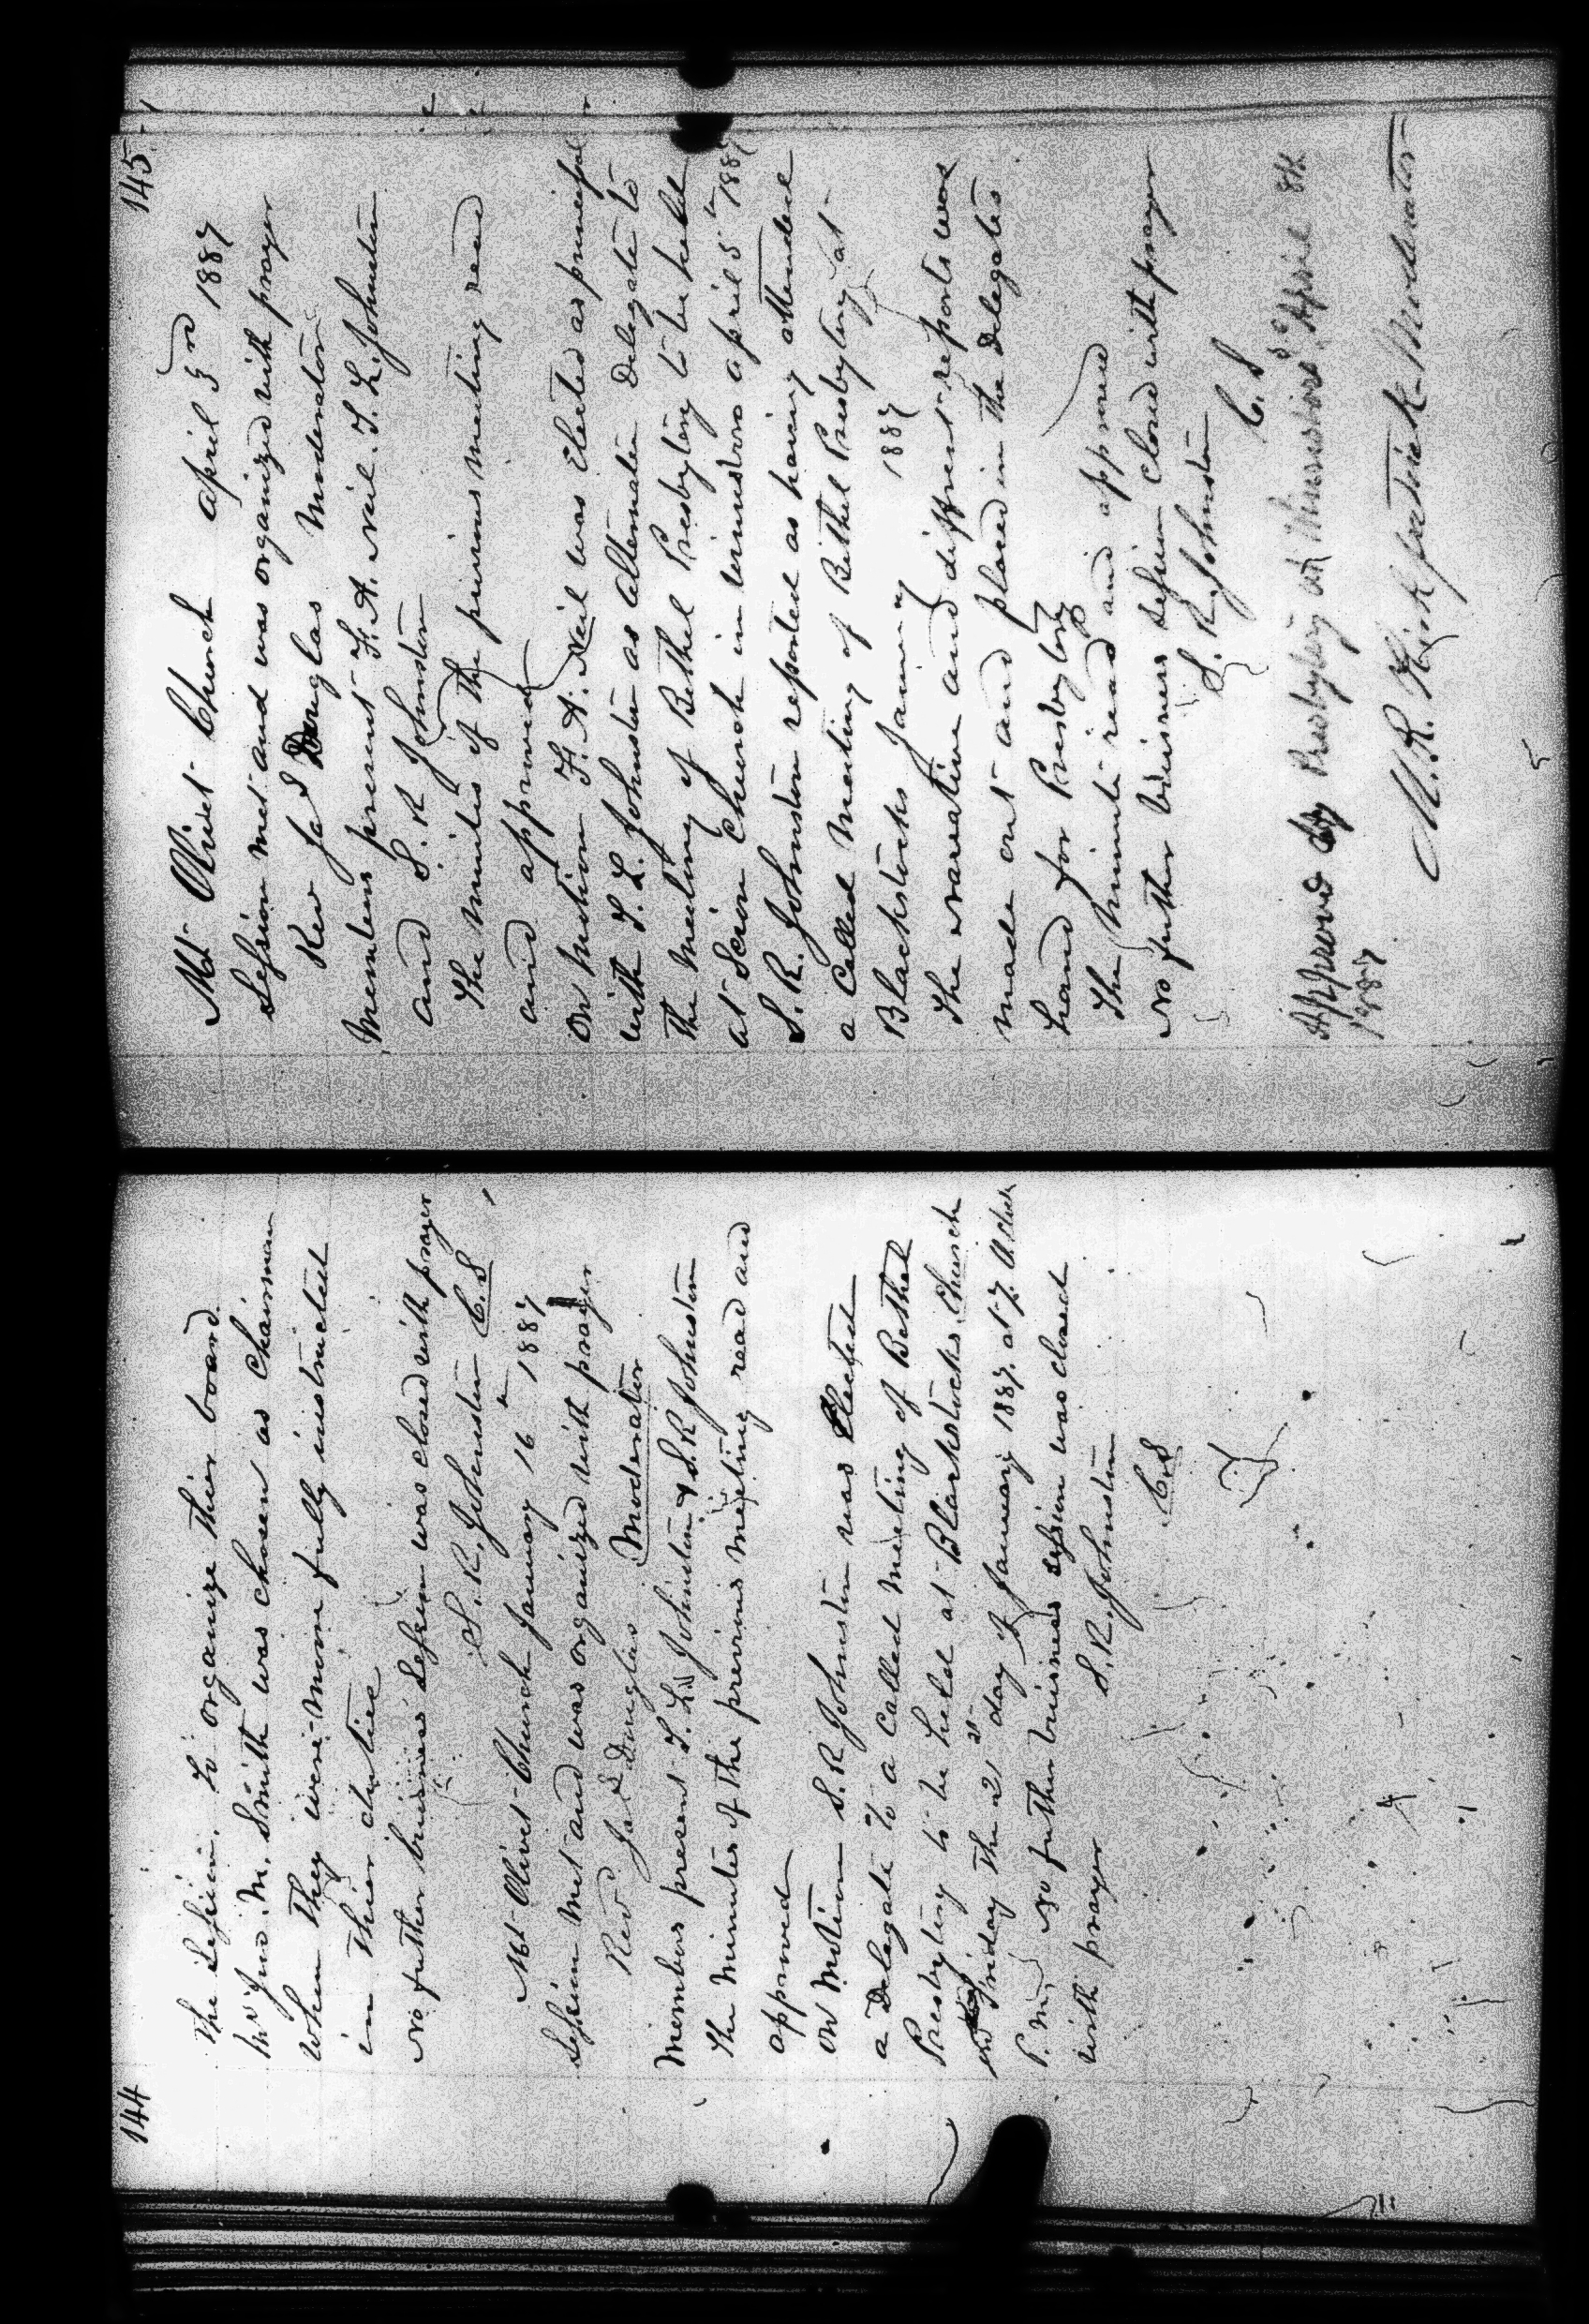 144
The Session. To organize thier board.
Mr Jno. M. Smith was chosen as Chairman
when they were more fully instructed
in thier duties
No futher buisness Session was closed with prayer
S. R. Johnston C.S
Mt Olivet Church January 16th 1887
Session met and was organized with prayer
Revd Jas Douglas Moderator
Members present T. L. Johnston & S. R Johnston
the minutes of the previous meeting read and
approved
on motion S. R Johnston was Elected
a Delegate to a Called meeting of Bethel
Presbytery to be held at Blackstocks Church
on Friday the 21st day of January 1887. at 7. O.Clock
P. M. No futher buisness session was closed
with prayer S. R. Johnston
C.S
145
Mt Olivet Church april 3rd 1887
Session met and was organized with prayer
Rev Jas Douglas Moderator
Members present F. A. Neil. T. L. Johnston
and S. R Johnston
The minutes of the previous meeting read
and approved
On motion F. A. Neil was Elected as principal
with T. L. Johnston as alternate Delegate to
the meeting of Bethel Presbytery to be held
at Scion Church in winnsboro april 5th 1887
S. R. Johnston reported as having attended
a Called meeting of Bethel Presbytery at
Blackstocks January 1887
The narrative and diffrent reports were
made out and placed in the Delegates
hand for Presbytery
The minute read and approved
No futher buisness Session closed with prayer
S. R. Johnston
C. S
Approved by Presbytery at Winnsboro S.C April 8th
1887
M. R. Kirkpatrick Moderator